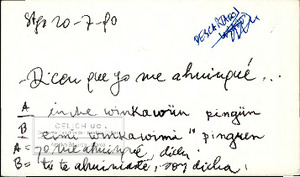 Stgo 20-7-90
DESCARTADO!
- Dicen que yo me ahuinqué...
A inche winkawün pingün
B eimi winkawimi " pingen
CELICH UC
A = yo me ahuinqué, dicen
B = tú te ahuincaste, sos dicha,